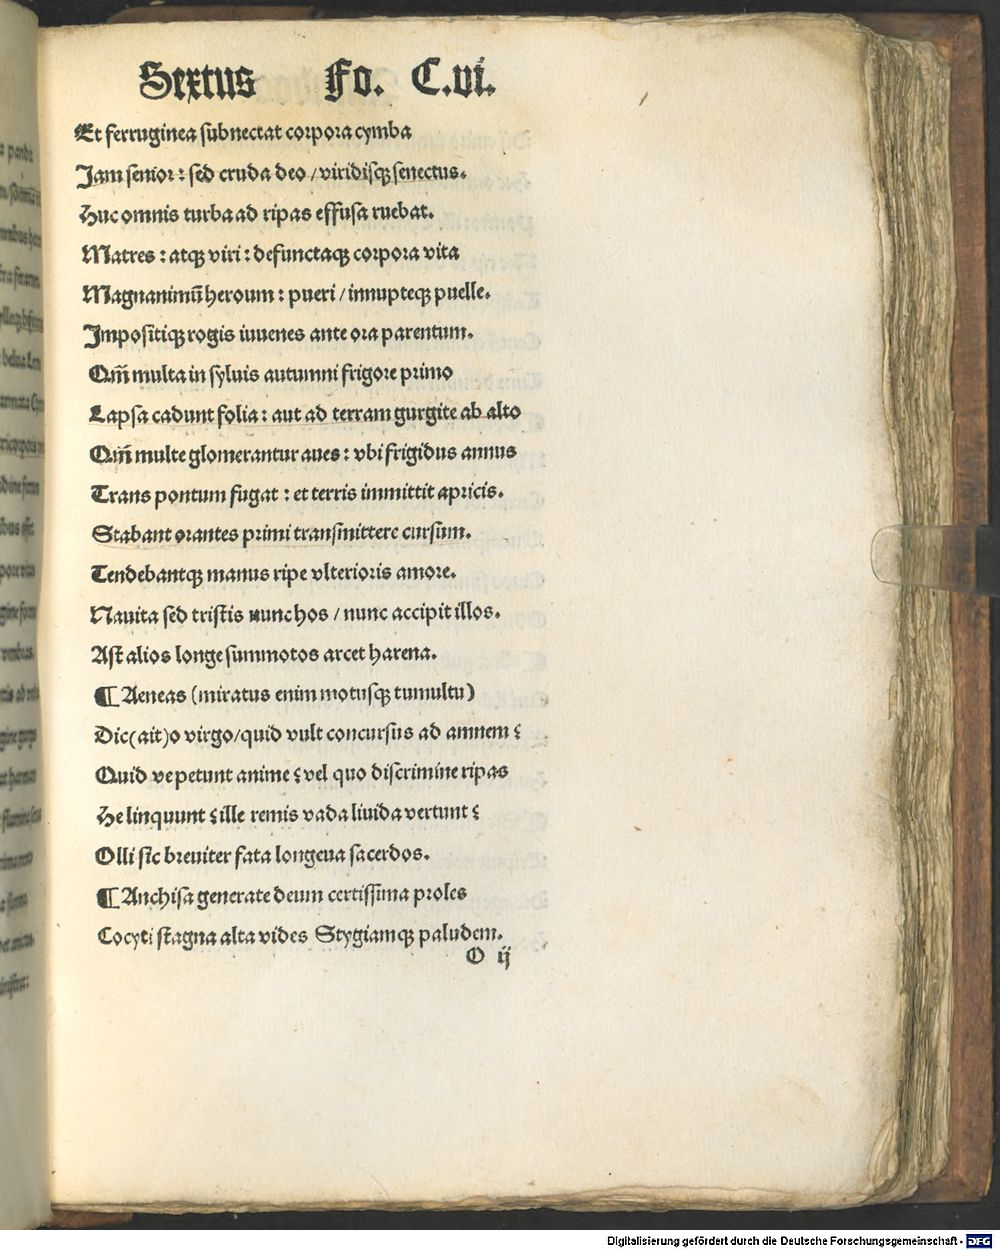 Sextus Fo. C.vi.
Et ferruginea subnectat corpora cymba
Jam senior: sed cruda deo / viridisqꝫ senectus.
Huc omnis turba ad ripas effusa ruebat.
Matres: atqꝫ viri: defunctaqꝫ corpora vita
Magnanimū heroum: pueri / innupteqꝫ puelle.
Impositiqꝫ rogis iuuenes ante ora parentum.
Qm̄ multa in syluis autumni frigore primo
Lapsa cadunt folia: aut ad terram gurgite ab alto
Qm̄ multe glomerantur aues: vbi frigidus annus
Trans pontum fugat: et terris immittit apricis.
Stabant orantes primi transmittere cursum.
Tendebantqꝫ manus ripe vlterioris amore.
Nauita sed tristis nunc hos / nunc accipit illos.
Ast alios longe summotos arcet harena.
¶ Aeneas (miratus enim motusqꝫ tumultu)
Dic(ait)o virgo/quid vult concursus ad amnem?
Quid ve petunt anime? vel quo discrimine ripas
He linquunt? ille remis vada liuida vertunt?
Olli sic breuiter fata longeua sacerdos.
¶ Anchisa generate deum certissima proles
Cocyti stagna alta vides Stygiamqꝫ paludem.
O ij
Digitalisierung gefördert durch die Deutsche Forschungsgemeinschaft - DFG